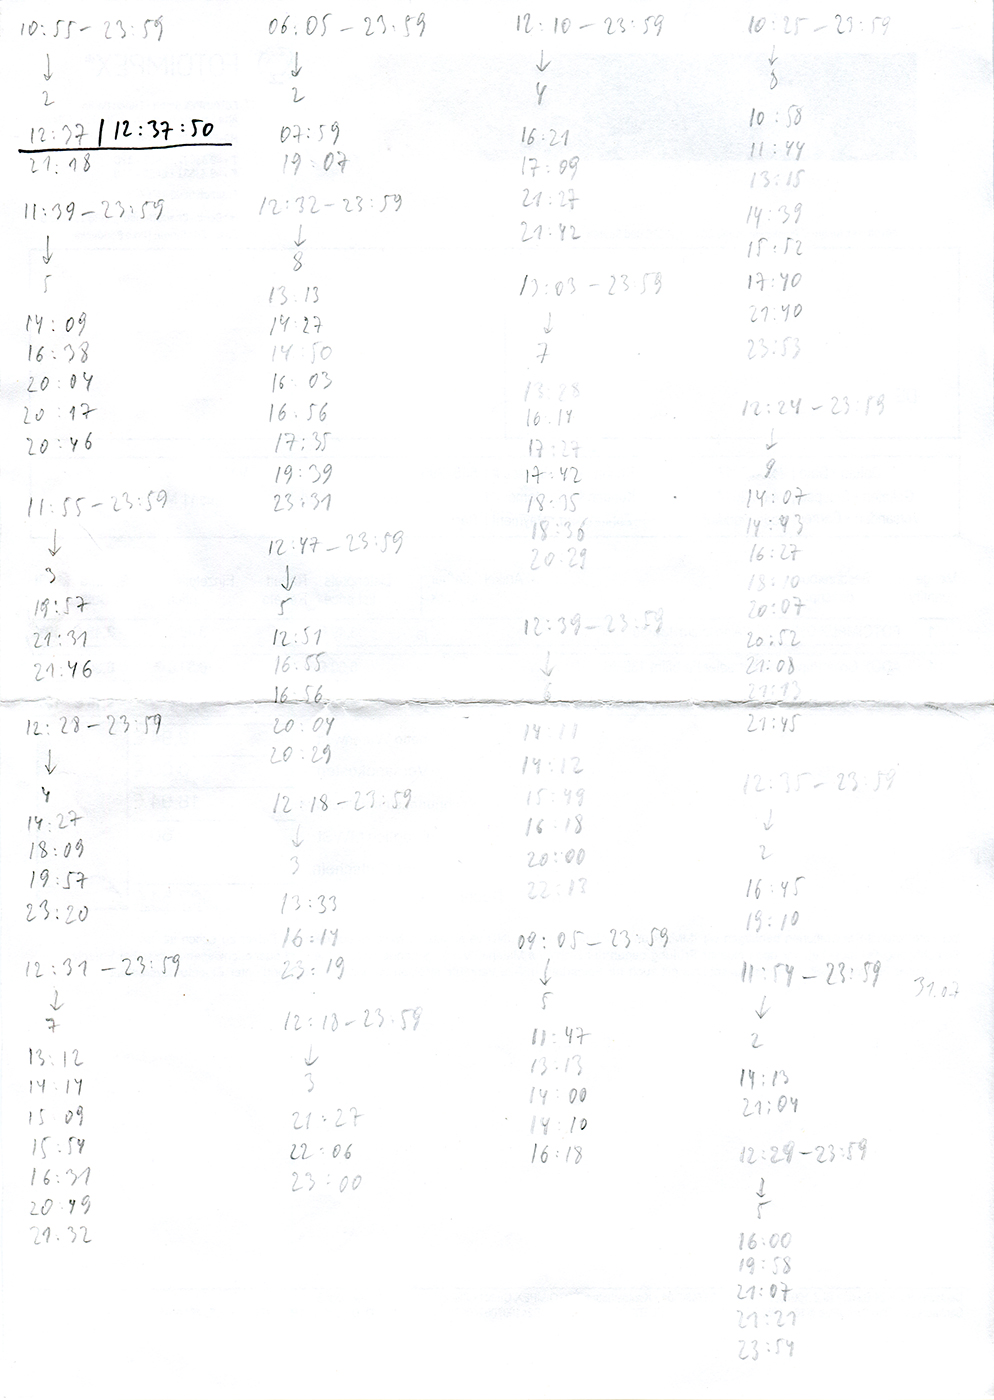 10:55 – 23:59
↓
2
12:37 / 12:37:50
21:18
11:39 – 23:59
↓
5
14:09
16:38
20:04
20:17
20:46
11:55 – 23:59
↓
3
19:57
21:31
21:46
12:28 – 23:59
↓
4
14:27
18:09
19:57
23:20
12:31 – 23:59
↓
7
13:12
14:14
15:09
15:54
16:31
20:49
21:32
06:05 – 23:59
↓
2
07:59
19:07
12:32 – 23:59
↓
8
13:13
14:27
14:50
16:03
16:56
17:35
19:39
23:31
12:47 – 23:59
↓
5
12:51
16:55
16:56
20:04
20:29
12:18 – 23:59
↓
3
13:33
16:14
23:19
12:13 – 23:59
↓
3
21:27
22:06
23:00
12:10 – 23:59
↓
4
16:21
17:09
21:27
21:42
13:03 – 23:59
↓
7
13:28
16:14
17:27
17:42
18:15
18:36
20:29
12:39 – 23:59
↓
6
14:11
14:12
15:49
16:18
20:00
22:13
09:05 – 23:59
↓
5
11:47
13:13
14:00
14:10
16:18
10:25 – 23:59
↓
8
10:58
11:44
13:15
14:39
15:52
17:40
21:40
23:53
12:24 – 23:59
↓
9
14:07
14:43
16:27
19:10
20:07
20:52
21:08
21:13
21:45
12:35 – 23:59
↓
2
16:45
19:10
11:54 – 23:59 31.07
↓
2
14:13
21:04
12:29 – 23:59
↓
5
16:00
19:58
21:07
21:21
23:54